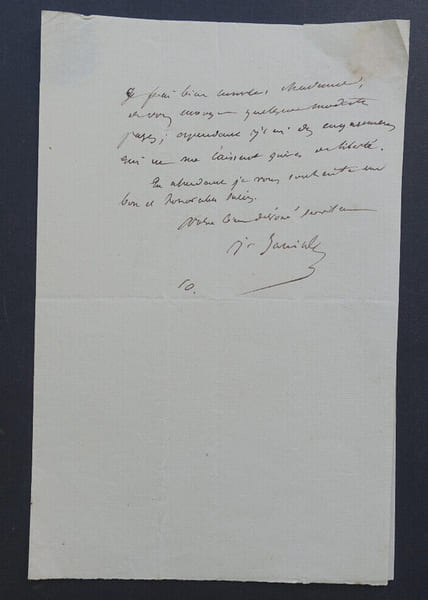 Je ferai bien
de vous envoyer quelques modestes
pages; cependant j'ai des engagements
qui ne me laissent guères de liberté.
En attendant je vous souhaite un
bon et honorable succès.
Votre bien dévoué serviteur